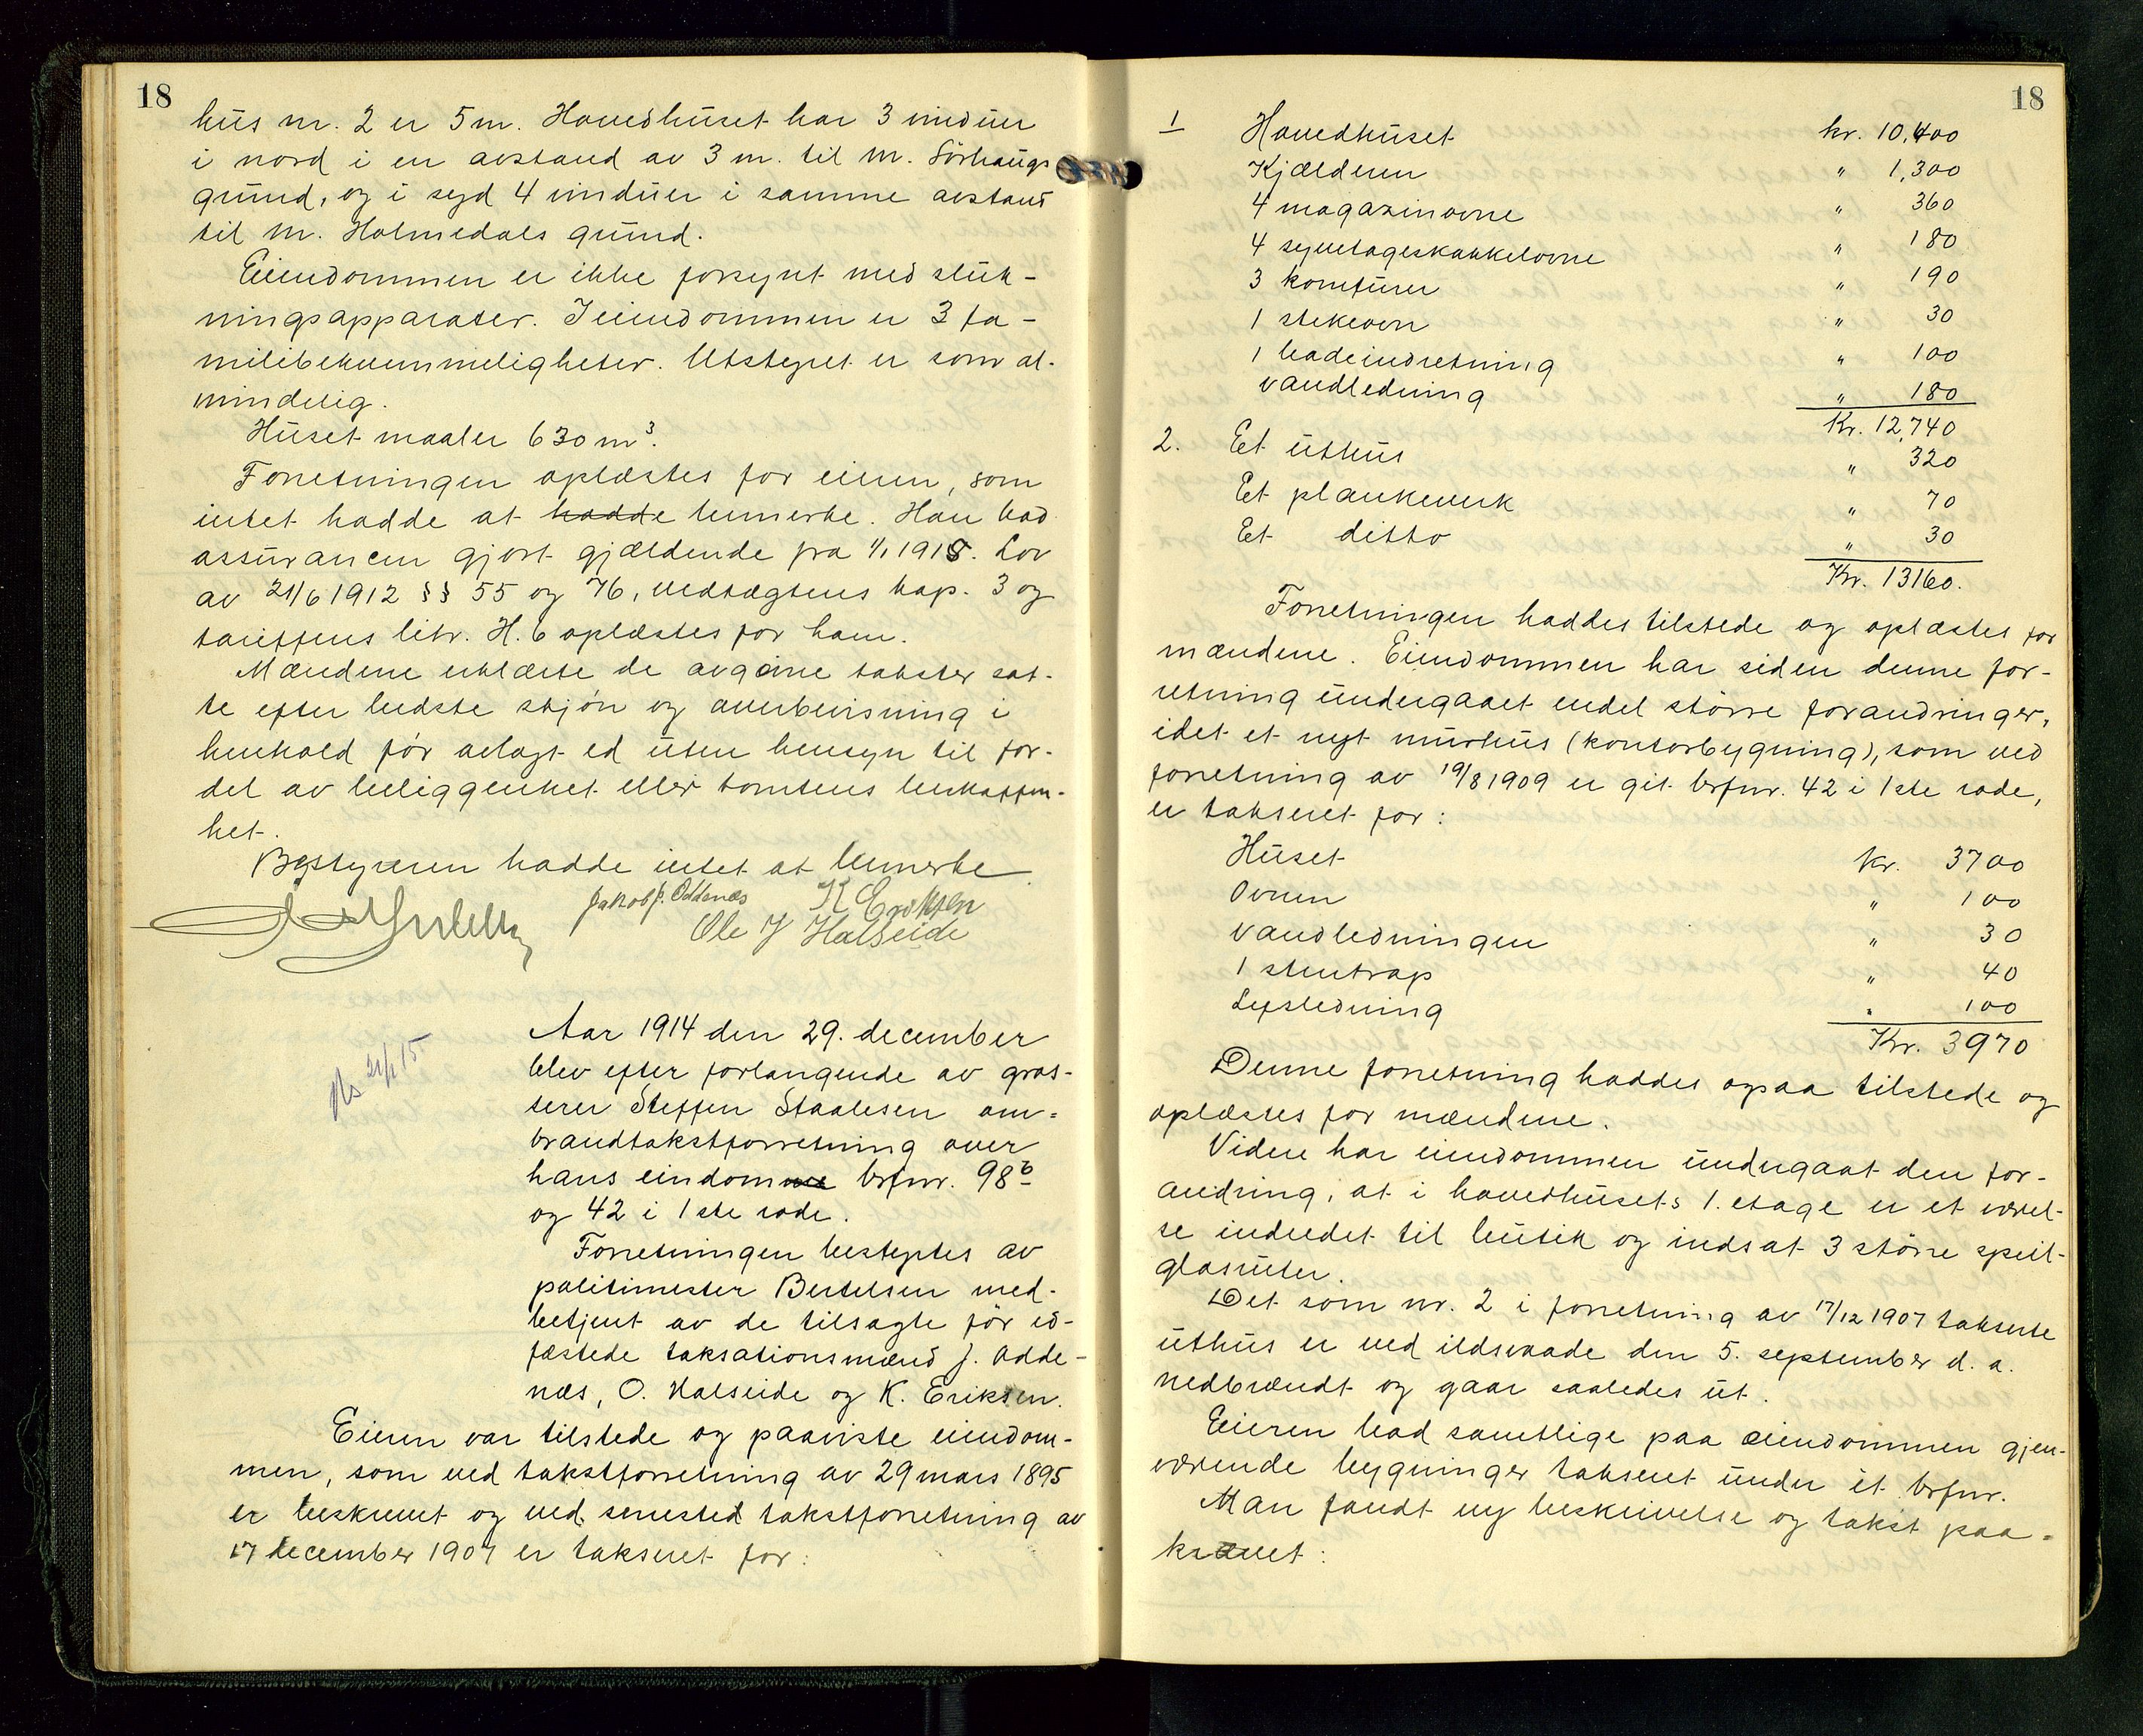 18
hus nr. 2 er 5 m. Hovedhuset har 3 vinduer
i nord i en avstand av 3 m. til m. Sörhaugs
grund, og i syd 4 vinduer i samme avstand
til m. Holmedals grund.
Eiendommen er ikke forsynt med sluk-
ningsapparater. I eiendommen er 3 fa-
miliebekvemmeligheter. Utstyret er som al-
mindelig.
Huset maaler 630 m³.
Forretningen oplæstes for eieren, som
intet hadde at hadde bemerke. Han bad
assurancen gjort gjældende fra 1/1 1915. Lov
av 21/6 1912 §§ 55 og 76, vedtægtens kap. 3 og
tariffens litr. H. 6 oplæstes for ham.
Mændene erklærte de avgivne takster sat-
te efter bedste skjön og overbevisning i
henhold för avlagt ed uten hensyn til for-
del av beliggenhet eller tomtens beskaffen-
het.
Bestyreren hadde intet at bemerke.
Jakob J. Oddenæs K Eriksen
Ole J Halseide
21/1 15
Aar 1914 den 29. december
blev efter forlangende av gros-
serer Steffen Staalesen om-
brandtakstforretning over
hans eiendomme brfnr. 98b
og 42 i 1ste rode.
Forretningen bestyrtes av
politimester Bertelsen med-
betjent av de tilsagte för ed-
fæstede taksationsmænd J. Odde-
næs, O. Halseide og K. Eriksen.
Eieren var tilstede og paaviste eiendom-
men, som ved takstforretning av 29 mars 1895
er beskrevet og ved senested takstforretning av
17 december 1907 er takseret for:
18
1 Hovedhuset kr. 10,400
Kjælderen " 1,300
4 magazinovne " 360
4 syvetageskakkelovne " 180
3 komfurer " 190
1 stekeovn " 30
1 badeindretning " 100
vandledning " 180
Kr. 12,740
2. Et uthus " 320
Et plankeverk " 70
Et ditto " 30
Kr. 13160.
Forretningen haddes tilstede og oplæstes for
mændene. Eiendommen har siden denne for-
retning undergaaet endel större forandringer,
idet et nyt murhus (kontorbygning), som ved
forretning av 19/8 1909 er git brfnr. 42 i 1ste rode,
er takseret for:
Huset Kr. 3700
Ovnen " 100
Vandledningen " 30
1 stentrap " 40
Lysledning " 100
Kr. 3970
Denne forretning haddes ogsaa tilstede og
oplæstes for mændene.
Videre har eiendommen undergaat den for-
andring, at i hovedhusets 1. etage er et værel-
se indredet til butik og indsat 3 större speil-
glasruter.
Det som nr. 2 i forretning av 17/12 1907 takserte
uthus er ved ildsvaade den 5. september d. a.
nedbrændt og gaar saaledes ut.
Eieren bad samtlige paa eiendommen gjen-
værende bygninger takseret under et brfnr.
Man fandt ny beskrivelse og takst paa-
krævet: